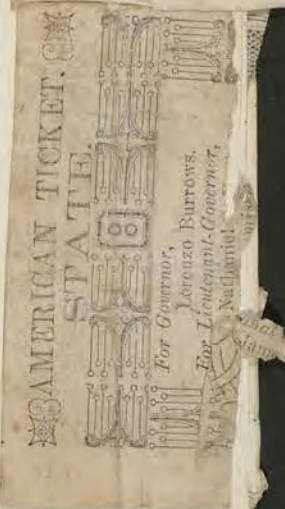 AMERICAN TICKET.
STATE.
For Governor,
Lorenzo Burrows.
For Lieutenant-Governor,
Nathaniel